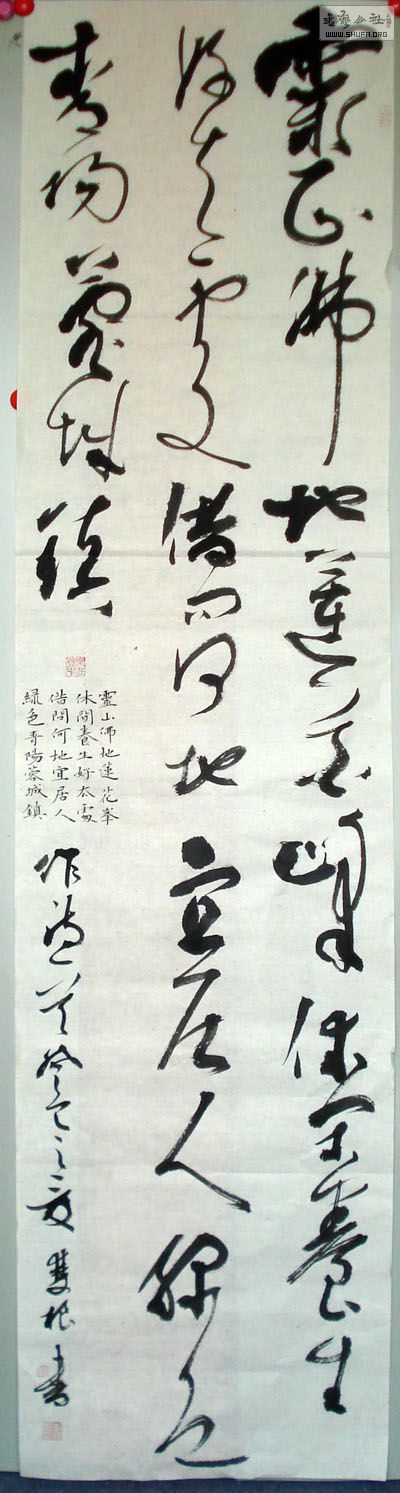 书艺公社
WWW.SHUFA.ORG
靈山佛地蓮花峰休閑養生
好去處借問何地宜居人綠色
青陽蓉城鎮
靈山佛地蓮花峯
休閒養生好去處
借問何地宜居人
綠色青陽蓉城鎮
雙根書